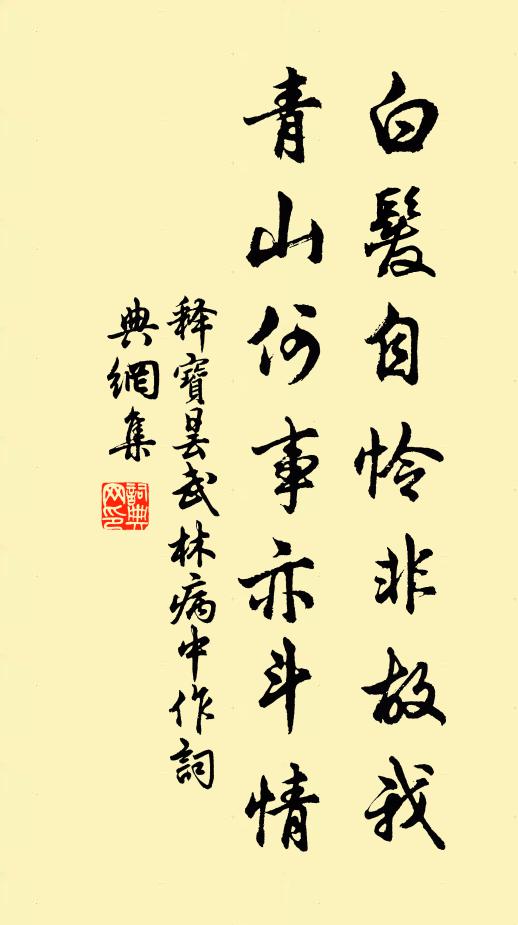 白髮自怜非故我
青山何事亦斗情
释寶昙武林病中作詞
典網集
詞典网印